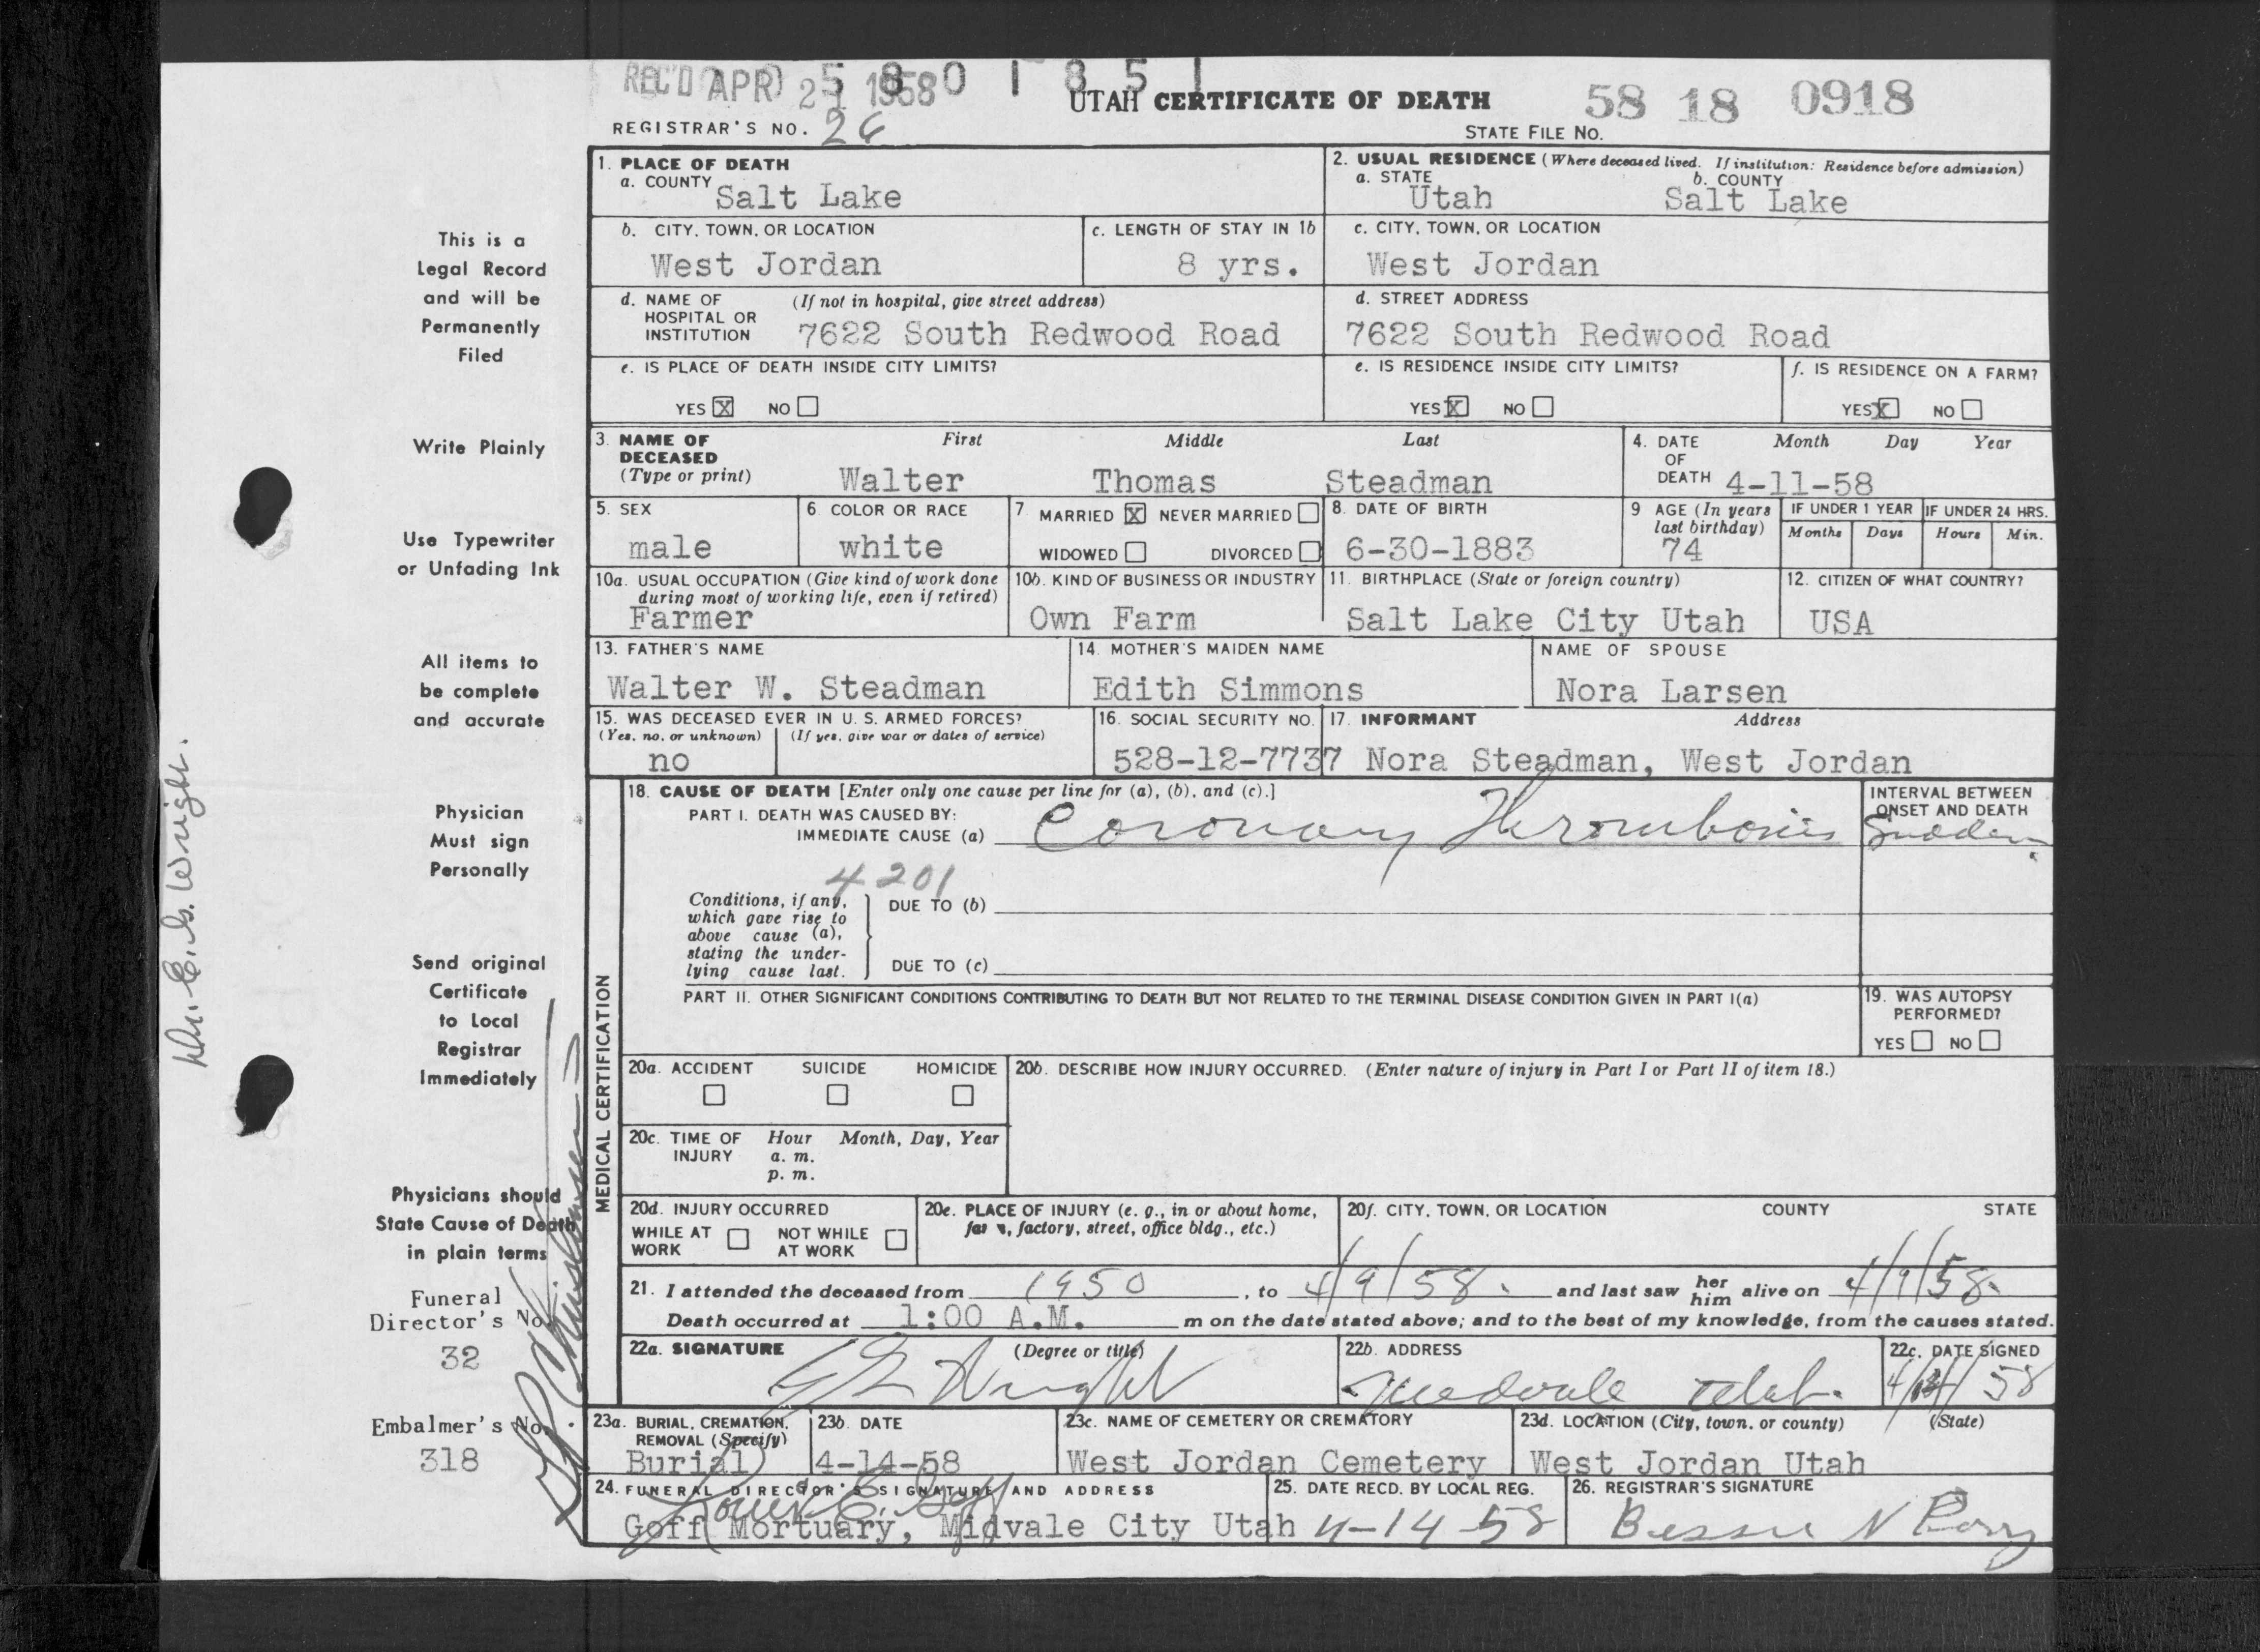 REC'D APR 21 1958
5 8 0 1 8 5 1
UTAH CERTIFICATE OF DEATH
58 18 0918
REGISTRAR'S NO. 26
STATE FILE NO.
1. PLACE OF DEATH
a. COUNTY
Salt Lake
2. USUAL RESIDENCE (Where deceased lived. If institution: Residence before admission)
a. STATE b. COUNTY
Utah Salt Lake
b. CITY, TOWN, OR LOCATION
West Jordan
c. LENGTH OF STAY IN 1b
8 yrs.
c. CITY, TOWN, OR LOCATION
West Jordan
d. NAME OF HOSPITAL OR INSTITUTION (If not in hospital, give street address)
7622 South Redwood Road
d. STREET ADDRESS
7622 South Redwood Road
e. IS PLACE OF DEATH INSIDE CITY LIMITS?
YES X NO
e. IS RESIDENCE INSIDE CITY LIMITS?
YES X NO
f. IS RESIDENCE ON A FARM?
YES X NO
3. NAME OF DECEASED (Type or print)
First Middle Last
Walter Thomas Steadman
4. DATE OF DEATH Month Day Year
4-11-58
5. SEX
male
6 COLOR OR RACE
white
7 MARRIED X NEVER MARRIED
WIDOWED DIVORCED
8. DATE OF BIRTH
6-30-1883
9 AGE (In years last birthday)
74
IF UNDER 1 YEAR
Months Days
IF UNDER 24 HRS.
Hours Min.
10a. USUAL OCCUPATION (Give kind of work done during most of working life, even if retired)
Farmer
10b. KIND OF BUSINESS OR INDUSTRY
Own Farm
11. BIRTHPLACE (State or foreign country)
Salt Lake City Utah
12. CITIZEN OF WHAT COUNTRY?
USA
13. FATHER'S NAME
Walter W. Steadman
14. MOTHER'S MAIDEN NAME
Edith Simmons
NAME OF SPOUSE
Nora Larsen
15. WAS DECEASED EVER IN U. S. ARMED FORCES?
(Yes, no, or unknown) (If yes, give war or dates of service)
no
16. SOCIAL SECURITY NO.
528-12-7737
17. INFORMANT Address
Nora Steadman, West Jordan
MEDICAL CERTIFICATION
18. CAUSE OF DEATH [Enter only one cause per line for (a), (b), and (c).]
PART I. DEATH WAS CAUSED BY:
IMMEDIATE CAUSE (a) Coronary Thrombosis
INTERVAL BETWEEN ONSET AND DEATH
Sudden
4201
Conditions, if any, which gave rise to above cause (a), stating the underlying cause last.
DUE TO (b)
DUE TO (c)
PART II. OTHER SIGNIFICANT CONDITIONS CONTRIBUTING TO DEATH BUT NOT RELATED TO THE TERMINAL DISEASE CONDITION GIVEN IN PART I(a)
19. WAS AUTOPSY PERFORMED?
YES NO
20a. ACCIDENT SUICIDE HOMICIDE
20b. DESCRIBE HOW INJURY OCCURRED. (Enter nature of injury in Part I or Part II of item 18.)
20c. TIME OF INJURY Hour Month, Day, Year
a. m.
p. m.
20d. INJURY OCCURRED
WHILE AT WORK NOT WHILE AT WORK
20e. PLACE OF INJURY (e. g., in or about home, farm, factory, street, office bldg., etc.)
20f. CITY, TOWN, OR LOCATION COUNTY STATE
21. I attended the deceased from 1950, to 4/9/58. and last saw her him alive on 4/9/58.
Death occurred at 1:00 A.M. m on the date stated above; and to the best of my knowledge, from the causes stated.
22a. SIGNATURE (Degree or title)
Wright
22b. ADDRESS
Midvale Utah.
22c. DATE SIGNED
58
23a. BURIAL, CREMATION, REMOVAL (Specify)
Burial
23b. DATE
4-14-58
23c. NAME OF CEMETERY OR CREMATORY
West Jordan Cemetery
23d. LOCATION (City, town, or county) (State)
West Jordan Utah
24. FUNERAL DIRECTOR'S SIGNATURE AND ADDRESS
Goff Mortuary, Midvale City Utah
25. DATE RECD. BY LOCAL REG.
4-14-58
26. REGISTRAR'S SIGNATURE
Bessie N
This is a
Legal Record
and will be
Permanently
Filed
Write Plainly
Use Typewriter
or Unfading Ink
All items to
be complete
and accurate
Physician
Must sign
Personally
Send original
Certificate
to Local
Registrar
Immediately
Physicians should
State Cause of Death
in plain terms
Funeral
Director's No.
32
Embalmer's No.
318
Wright.